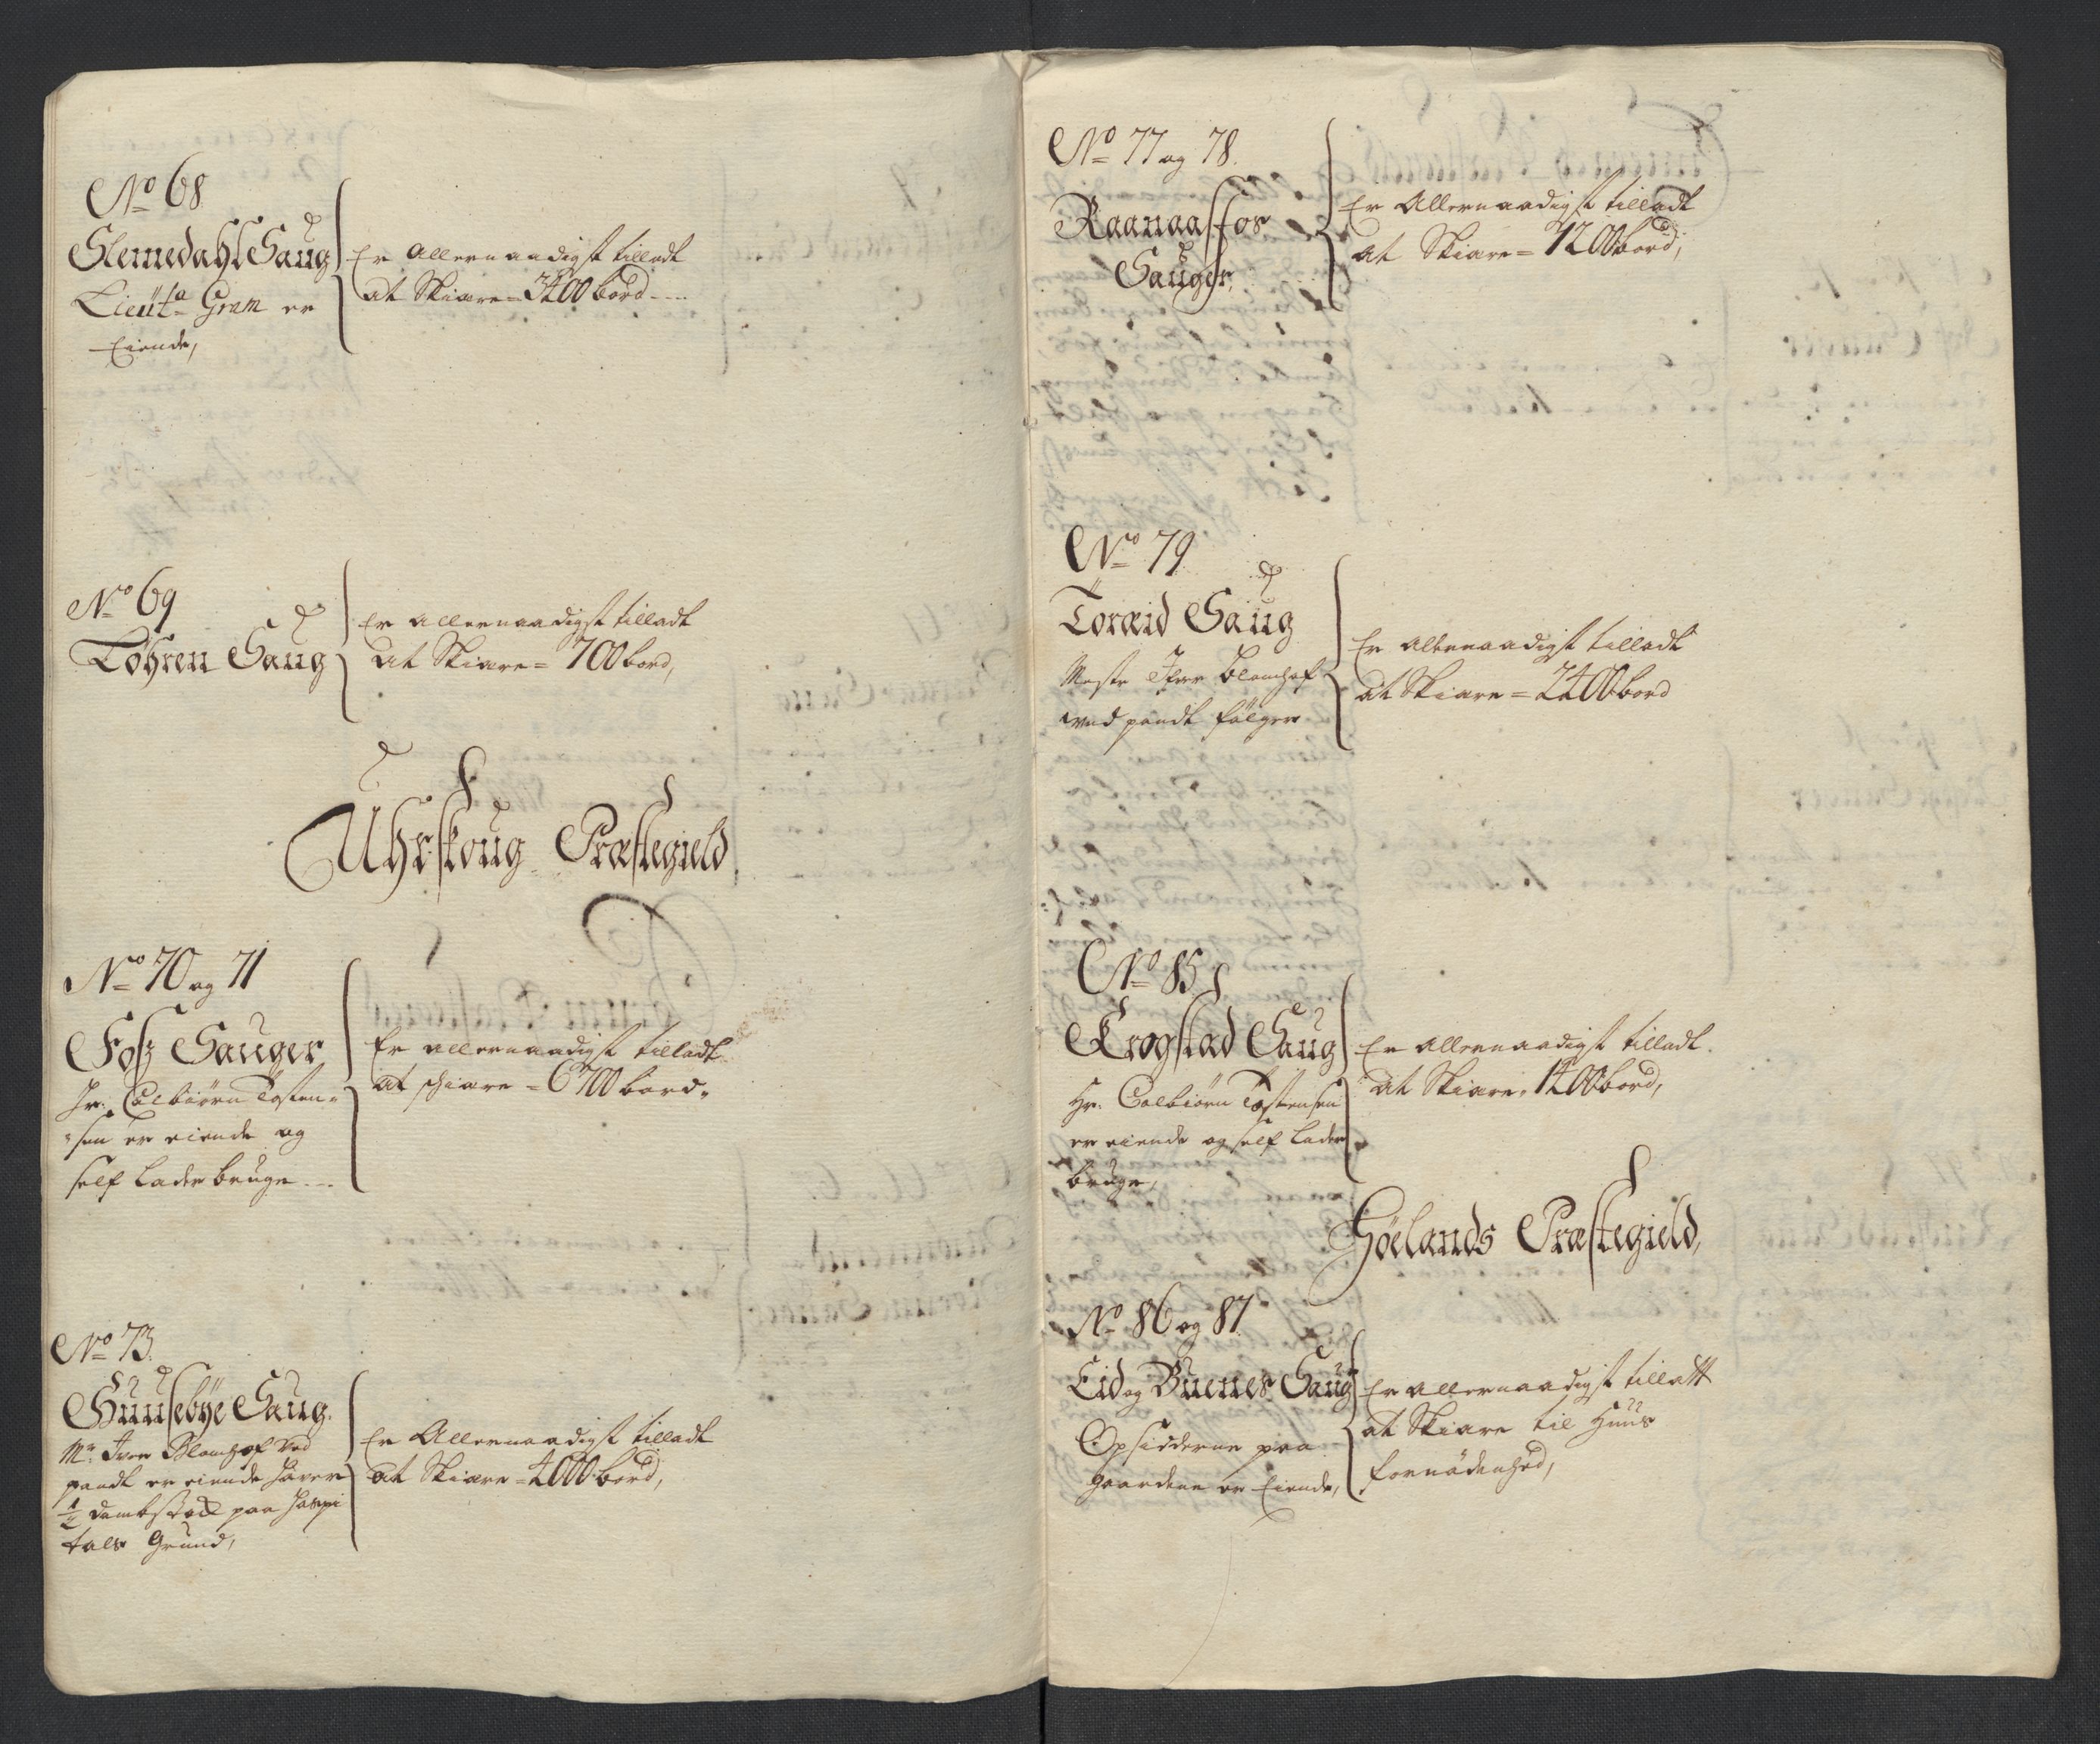 No 68
Slemedahl Saug
Lieutn Gram er
Eiende,
Er Allernaadigst tilladt
at Skiære = 3400 bord
No 69
Löhren Saug
Er allernaadigst tilladt
at Skiære = 700 bord,
Uhrskoug Præstegield,
No 70 og 71
Foss Sauger
Hr: Colbiörn Tosten=
=sen er eiende og
self lader bruge
Er allernaadigst tilladt
at schiære = 6700 bord
No 73
Huusebÿe Saug.
Mr Iver Blomhof ved
pandt er eiende hårer
1/2 dambstoel paa Hospi
tals Grund,
Er Allernaadigst tilladt
at Skiære = 4000 bord,
No 77 og 78.
Raanaasfos
Sauger,
Er Allernaadigst tilladt
at Skiære = 1200 bord,
No 79
Toræid Saug
Mestr Ifver Blomhof
ved pandt fölger
Er allernaadigst tilladt
at Skiære = 2400 bord
No 85
Krogstad Saug
Hr: Colbiörn Tostensen
er eiende og self lader
bruge,
Er allernaadigst tilladt.
at Skiære = 1400 bord,
Höelands Præstegield,
No 86 og 87
Eid og Buenes Saug
Opsidderne paa
gaardene er Eiende,
Er allernaadigst tilatt
at Skiære til Huus
fornödenhed,